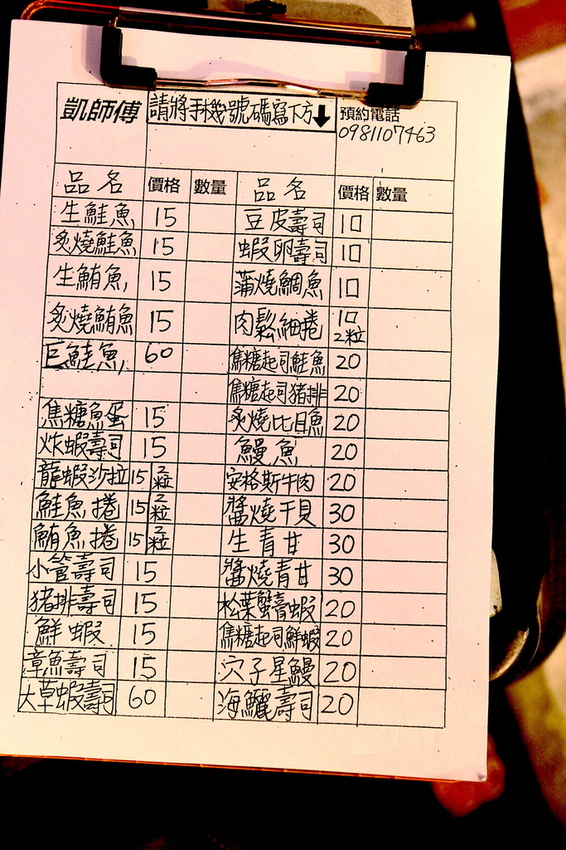 凱師傅 請將手機號碼寫下方↓ 預約電話
0981107463
品名 價格 數量 品名 價格 數量
生鮭魚 15 豆皮壽司 10
炙燒鮭魚 15 蝦卵壽司 10
生鮪魚 15 蒲燒鯛魚 10
炙燒鮪魚 15 肉鬆細捲 10 2粒
巨鮭魚 60 焦糖起司鮭魚 20
焦糖起司豬排 20
焦糖魚蛋 15 炙燒比目魚 20
炸蝦壽司 15 鰻魚 20
龍蝦沙拉 15 2粒 安格斯牛肉 20
鮭魚捲 15 2粒 醬燒干貝 30
鮪魚捲 15 2粒 生青甘 30
小管壽司 15 醬燒青甘 30
豬排壽司 15 松葉蟹膏蝦 20
鮮蝦 15 焦糖起司鮮蝦 20
章魚壽司 15 穴子星鰻 20
大草蝦壽司 60 海鱺壽司 20